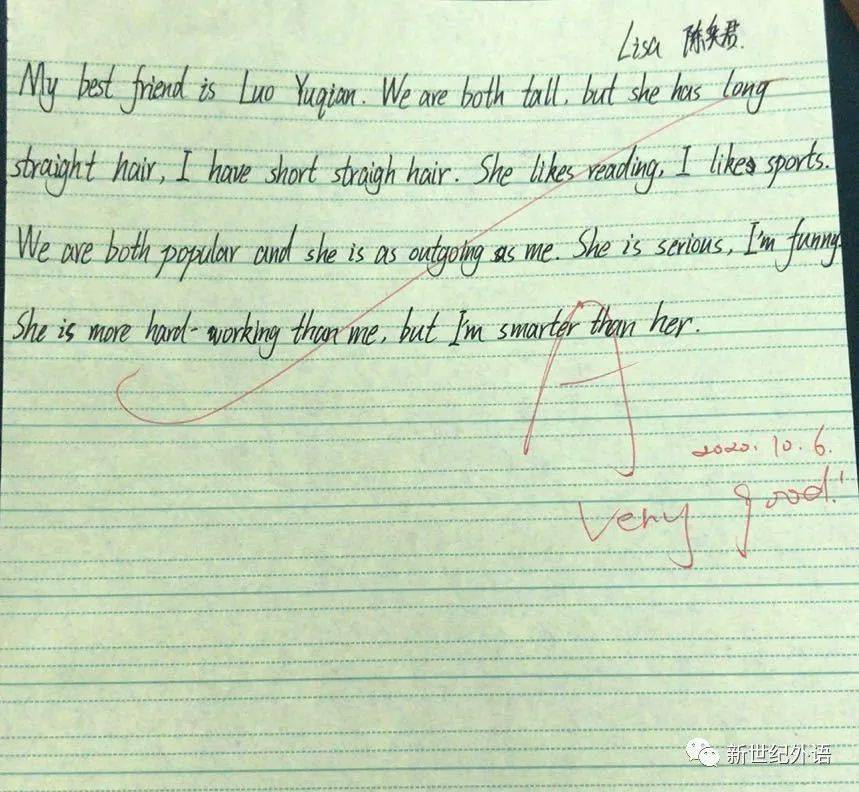 Lisa 陈奕君.
My best friend is Luo Yuqian. We are both tall, but she has long
straight hair, I have short straigh hair. She likes reading, I likes sports.
We are both popular and she is as outgoing as me. She is serious, I'm funny.
She is more hard-working than me, but I'm smarter than her.
A
2020.10.6.
very good!
新世纪外语